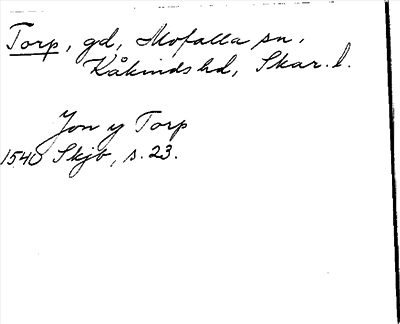 Torp, gd, Mofalla sn,
Kåkinds hd, Skar. l.
Jon y Torp
1540 Skjb, s. 23.